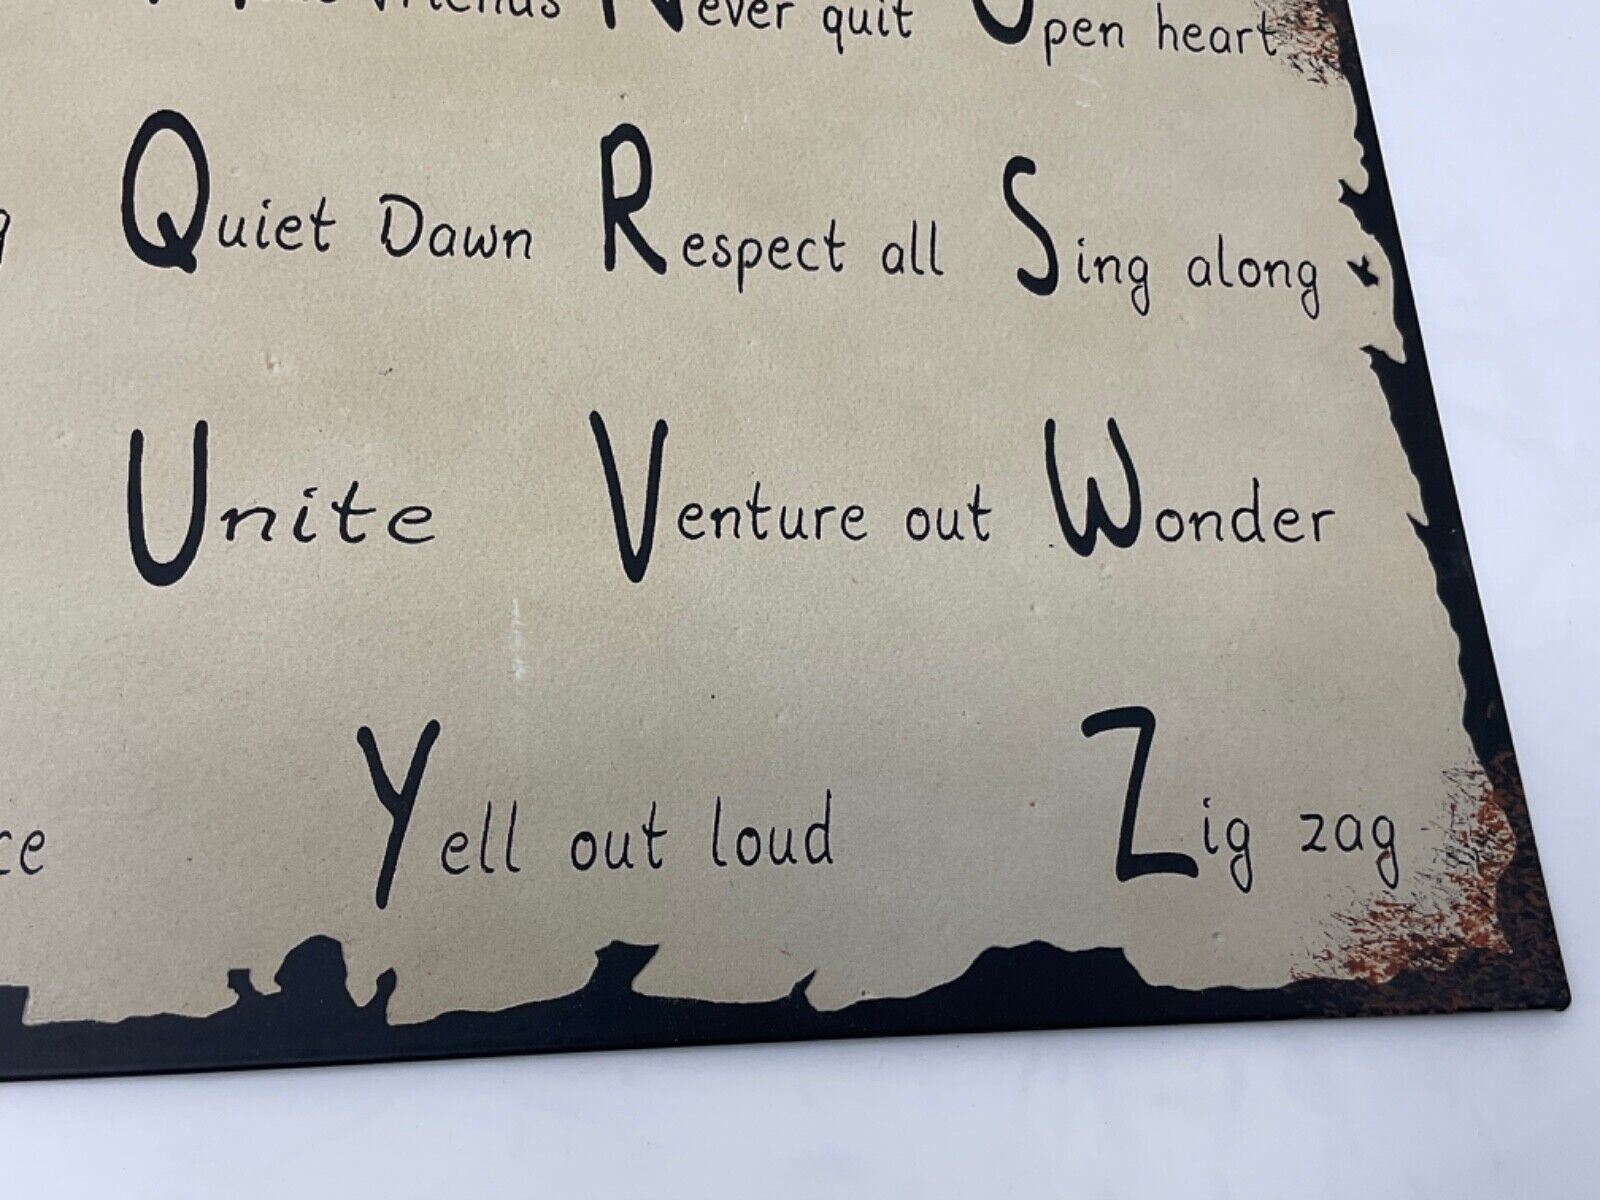 friends Never quit Open heart
Quiet Dawn Respect all Sing along
Unite Venture out Wonder
Yell out loud Zig zag